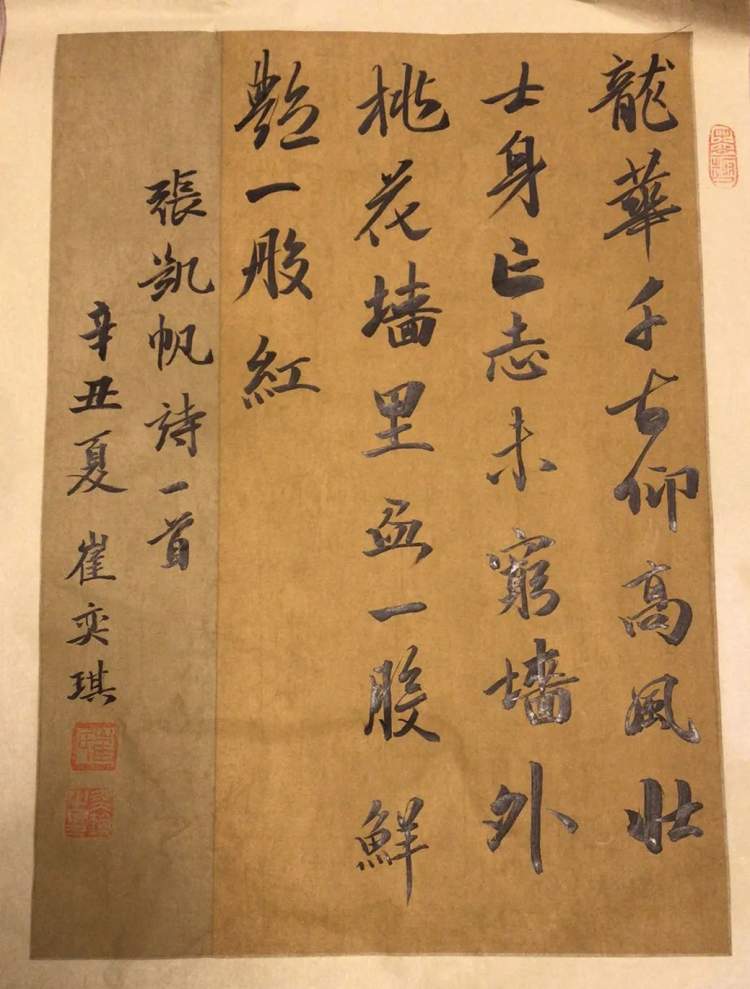 龍華千古仰高風壯
士身亡志未窮墙外
桃花墙里血一般鮮
艷一般紅
張凱帆詩一首
辛丑夏 崔奕琪